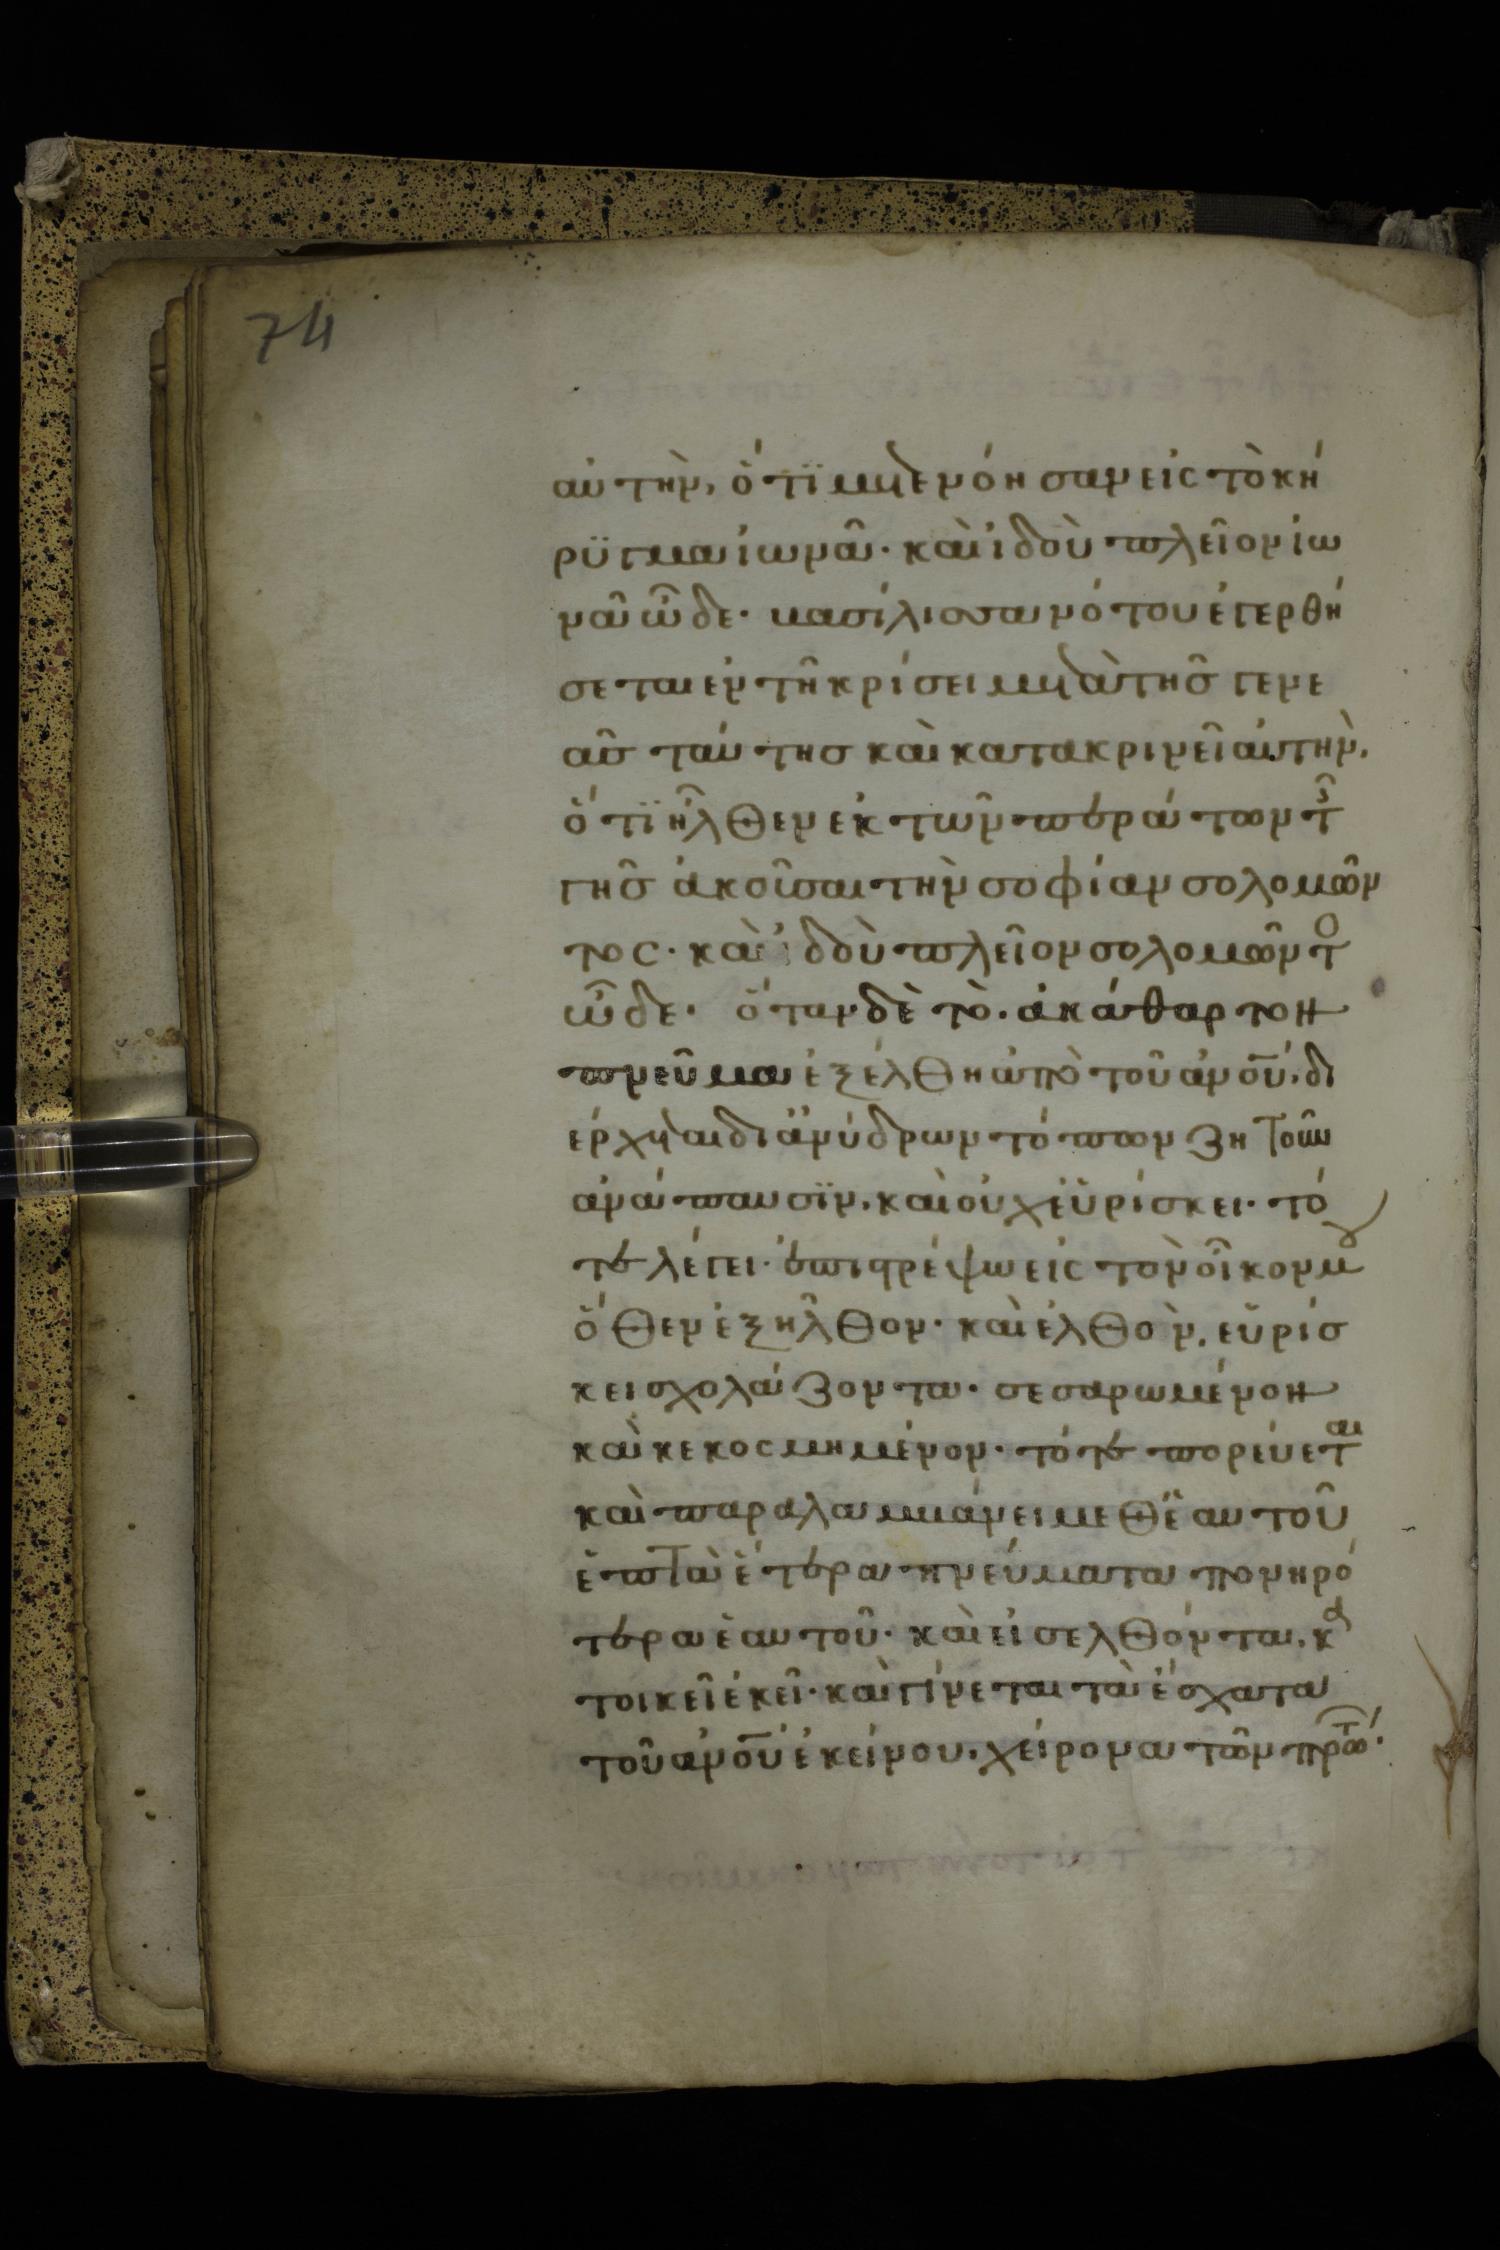 74
αὐτὴν, ὅτϊ μετενόησαν εἰς τὸ κή
ρϋγμα ἰωνᾶ· καὶ ἰδοὺ πλεῖον ἰω
νᾶ ὧδε· βασίλισσα νότου ἐγερθή
σεται ἐν τῆ κρίσει μετὰ τῆς γενε
ᾶς ταύτης καὶ κατακρινεῖ αὐτὴν,
ὅτϊ ἦλθεν ἐκ τῶν περάτων τ῀
γῆς ἀκοῦσαι τὴν σοφίαν σολομῶν
τος· καὶ ἰδοὺ πλεῖον σολομῶντο
ὧδε· ὅταν δὲ τὸ ἀκάθαρτον
πνεῦμα ἐξέλθη ἀπὸ τοῦ ἀνου̅, δι
έρχεται δι ἀνύδρων τόπων ζητοῦν
ἀνάπαυσϊν, καὶ οὐχ εὑρίσκει· τό
τε λέγει· ἐπιστρέψω εἰς τὸν οἶκον μου
ὅθεν ἐξῆλθον· καὶ ἐλθὸν, εὑρίσ
κει σχολάζοντα· σεσαρωμένον
καὶ κεκοσμημένον· τότε πορεύεται
καὶ παραλαμβάνει μεθ ἑαυτοῦ
ἑπτὰ ἕτερα πνεύματα πονηρό
τερα ἑαυτοῦ· καὶ εἰσελθόντα, κα
τοικεῖ ἐκεῖ· καὶ γίνεται τὰ ἔσχατα
τοῦ ἀνου̅ ἐκείνου, χείρονα τῶν πρώτ·